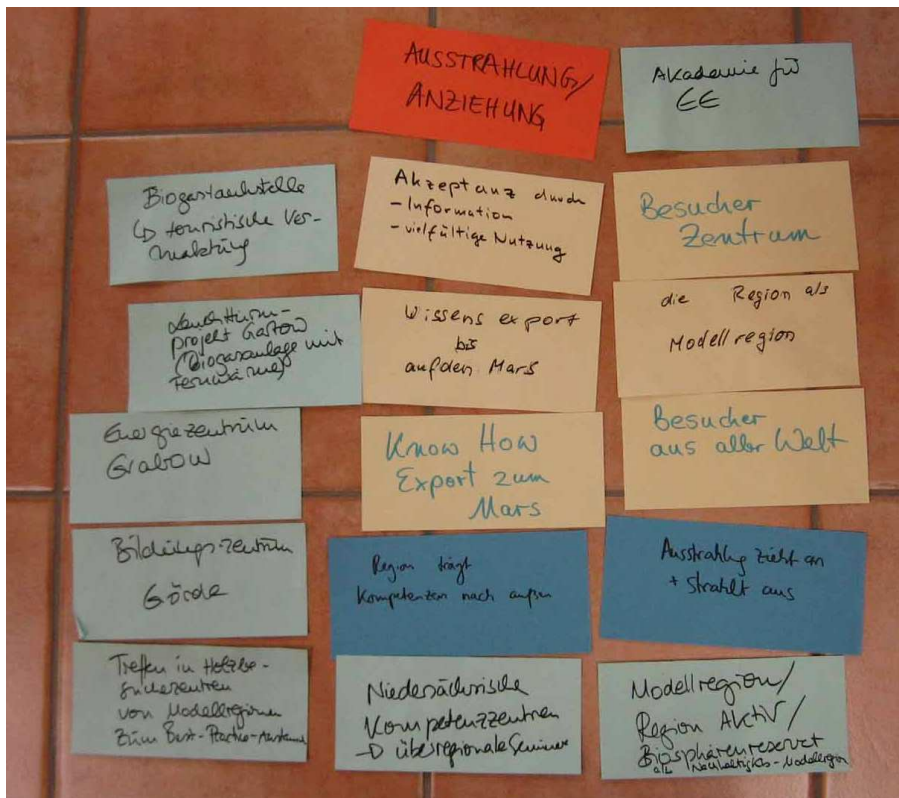 AUSSTRAHLUNG/
ANZIEHUNG
Akademie für
EE
Biogastankstelle
↳ touristische Ver-
marktung
Akzeptanz durch
- Information
- vielfältige Nutzung
Besucher
Zentrum
Leuchtturm-
projekt Gartow
(Biogasanlage mit
Fernwärme)
Wissens export
bis
auf den Mars
die Region als
Modellregion
Energiezentrum
Grabow
Know How
Export zum
Mars
Besucher
aus aller Welt
Bildungszentrum
Görde
Region trägt
Kompetenzen nach außen
Ausstrahlung zieht an
+ strahlt aus
Treffen in
von Modellregionen
zum Best-Practice-Austausch
Niedersächsische
Kompetenzzentren
→ überregionale Seminare
Modellregion/
Region Aktiv/
Biosphärenreservat
als Nachhaltigkeits-Modellregion